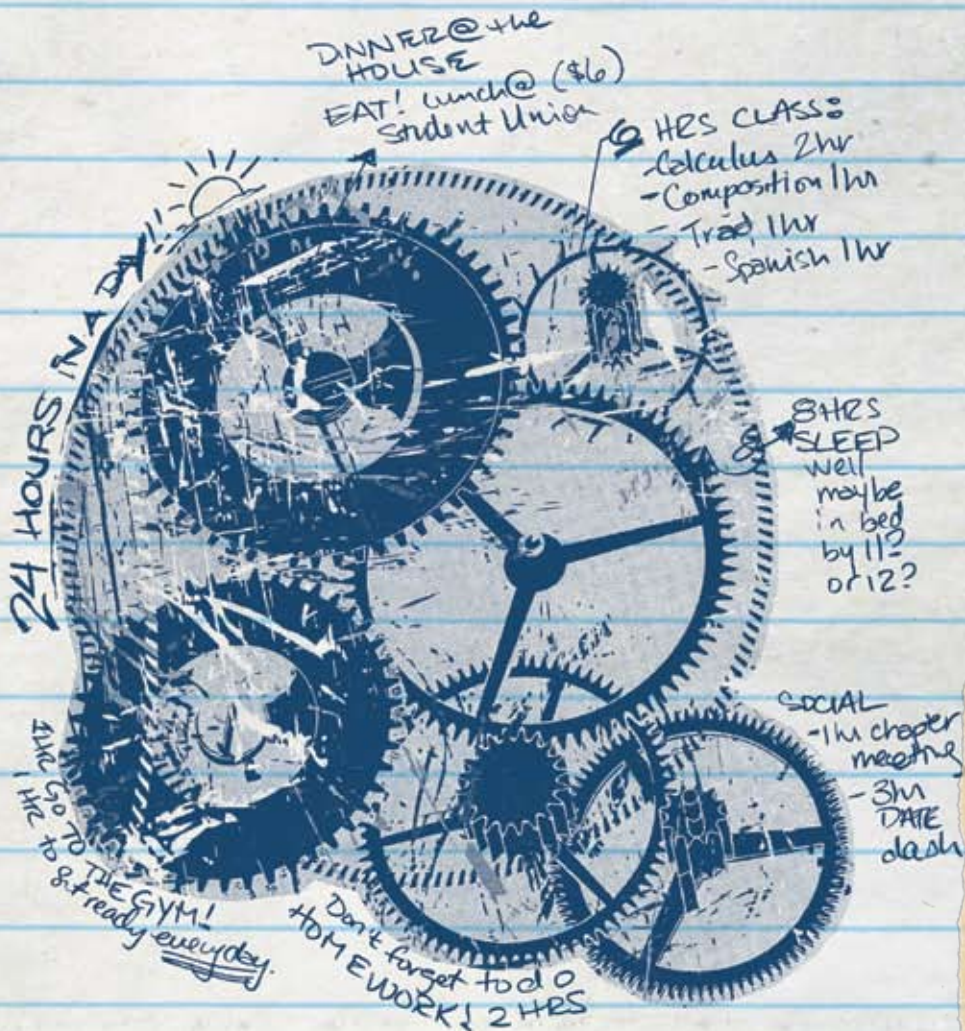 DINNER@the
HOUSE
EAT! Lunch@ ($6)
Student Union
HRS CLASS:
-Calculus 2hr
-Composition 1hr
- Trad, 1hr
- Spanish 1hr
24 HOURS IN A DAY
8HRS
SLEEP
well
maybe
in bed
by 11?
or 12?
SOCIAL
-1hr chapter
meeting
- 3hr
DATE
dash
1HR GO TO THE GYM!
1 HR to get ready everyday.
Don't forget to do
HOMEWORK! 2 HRS